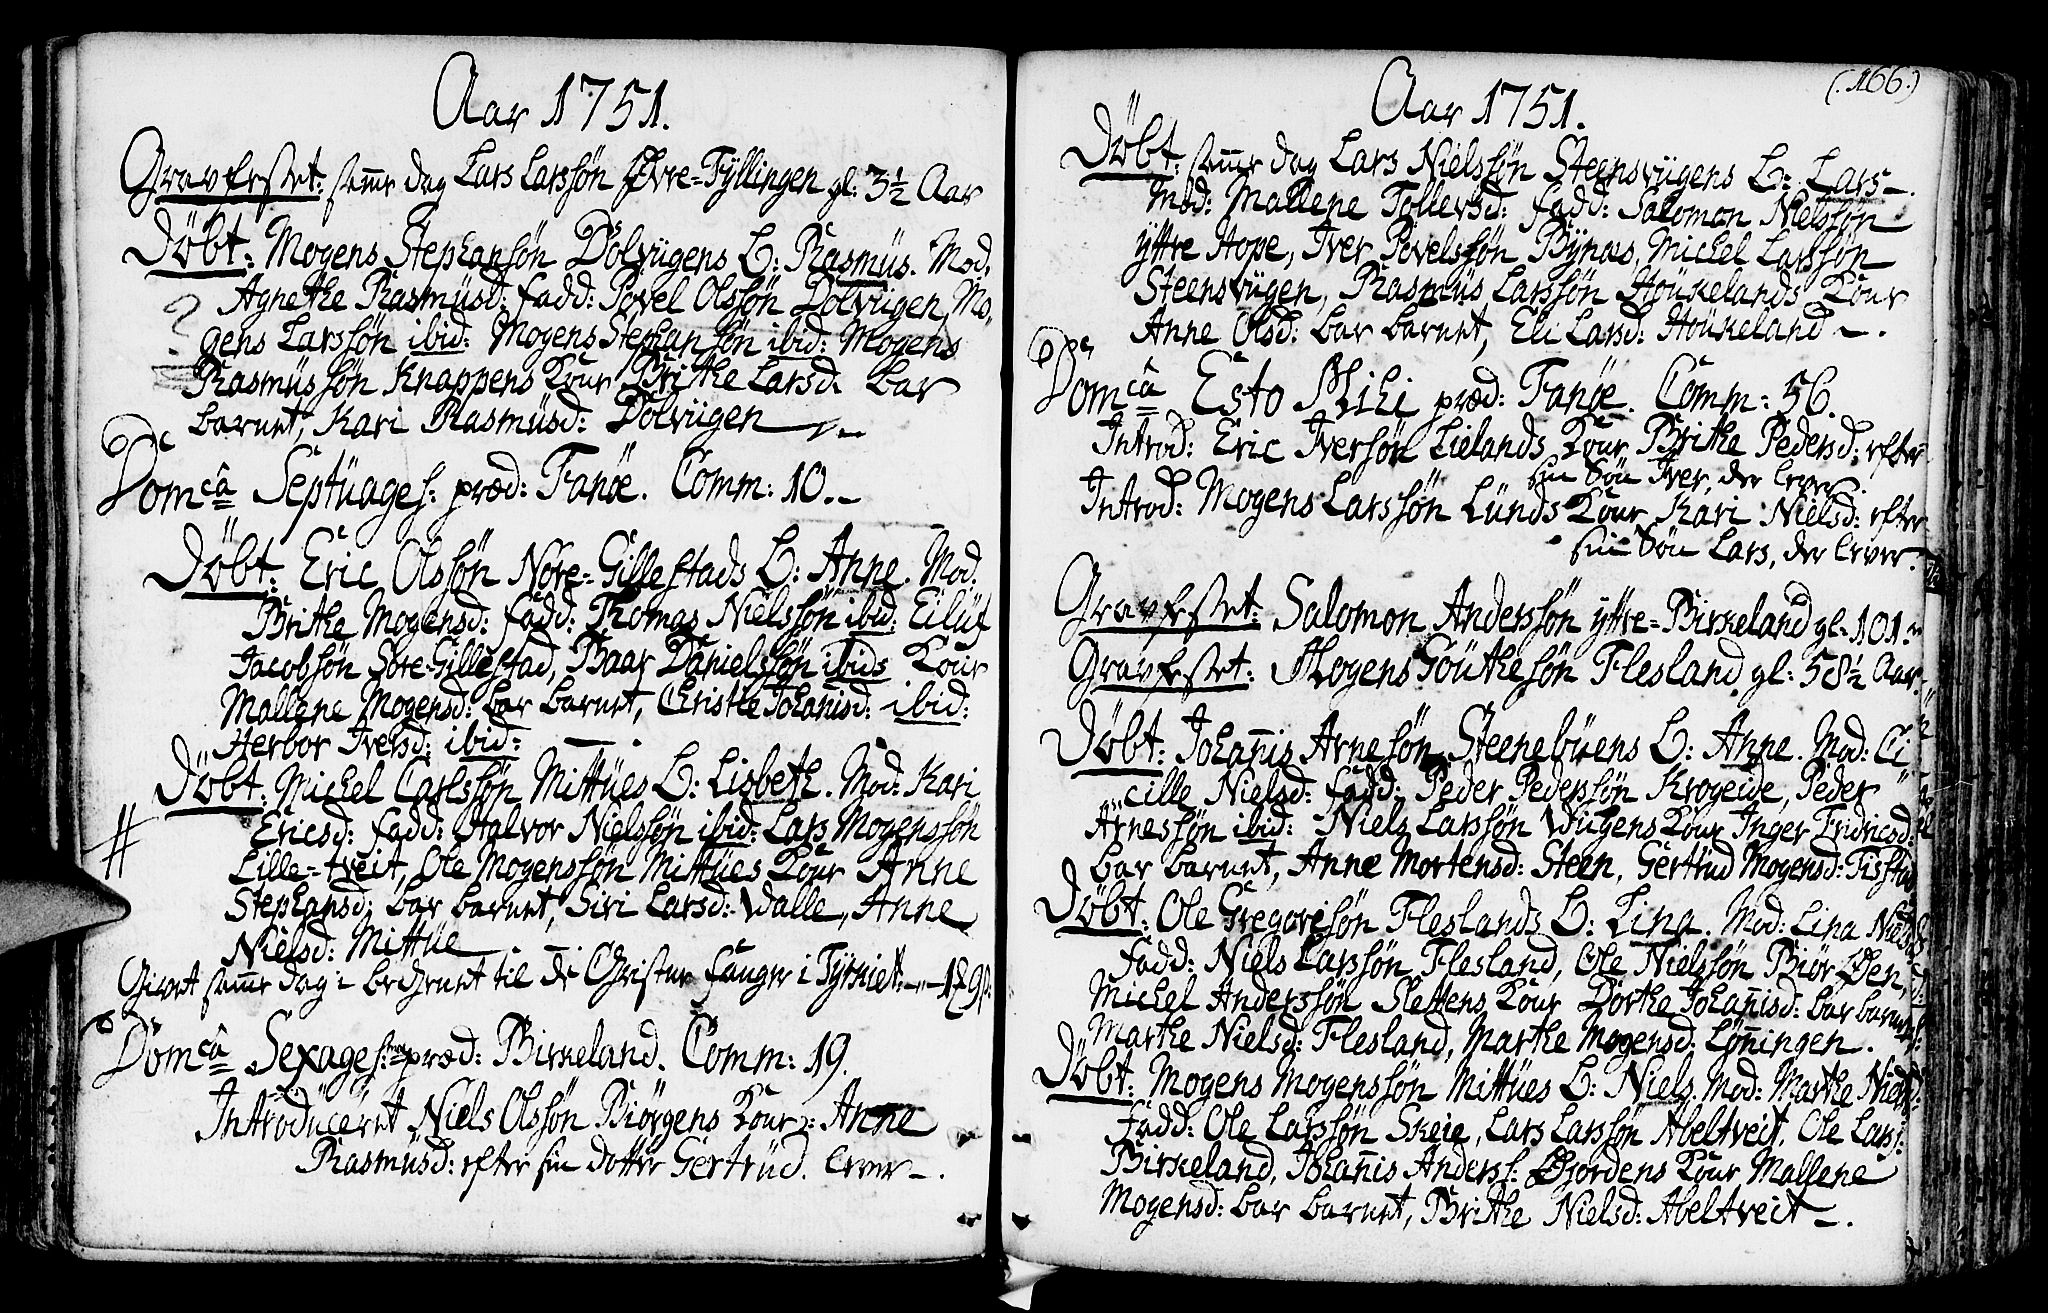 Aar 1751.
Gravfestet: samme dag Lars Larssøn Øvre-Tyllingen gl: 3½ Aar
Døbt: Mogens Stephanssøn Dolvigens B: Rasmus. Mod:
Agnethe Rasmusd: fadd: Povel Olssøn Dolviigen, Mo-
gens Larssøn ibid: Mogens Stephanssøn ibid: Mogens
Rasmussøn Knappens Kone Brithe Larsd. bar
barnet, Kari Rasmusd: Dolviigen
Domcâ Septuages: præd: Fanøe. Comm: 10.
Døbt: Eric Olssøn Nore-Gillestads B: Anne. Mod:
Brithe Mogensd: fadd: Thomas Nielssøn ibid: Eiluf
Jacobsøn Søre-Gillestad, Baar Danielssøn ibid: Kone
Mallene Mogensd: bar barnet, Christie Johannisd: ibid:
Herbor Iversd: ibid:
Døbt: Michel Carlssøn Mittües B: Lisbeth. Mod: Kari
Ericsd: fadd: Halvor Nielssøn ibid: Lars Mogenssøn
Lille-tveit, Ole Mogenssøn Mittües Kone Anne
Stephansd: bar barnet, Siri Larsd: Walle, Anne
Nielsd: Mittüe
Givet samme dag i bechenet til de Christne fanger i Tyrkiet
Domcâ Sexages: præd: Birkeland. Comm: 19.
Introduceret Niels Olssøn Biørgens Kone: Anne
Rasmusd: efter sin dotter Gertrud. lever.
(:166:)
Aar 1751.
Døbt: samme dag Lars Nielssøn Steensviigens B: Lars.
Mod: Mallene Tollevsd: fadd: Salomon Nielssøn
yttre Hope, Iver Povelssøn Bynæs, Michel Larssøn
Steensviigen, Rasmus Larssøn Houkelands Kone
Anne Olsd: bar barnet, Eli Larsd: Houkeland.
Domcâ Esto Mihi præd: Fanøe. Comm: 56.
Introd: Eric Iversøn Lielands Kone Brithe Pedersd: efter
sin Søn Iver, der lever.
Introd: Mogens Larssøn Lunds Kone Kari Nielsd: efter
sin Søn Lars, der lever.
Gravfestet: Salomon Anderssøn yttre-Birkeland gl: 101.
Gravfestet: Mogens Gouthesøn Flesland gl: 58½ Aar.
Døbt: Johannis Arnesøn Steenebüens B: Anne. Mod: Ci-
cille Nielsd: fadd: Peder Pederssøn Krogeide, Peder
Arnessøn ibid: Niels Larssøn Wiigens Kone Inger Fridricsd:
bar barnet, Anne Mortensd: Steen, Gertrud Mogensd: Tisstad
Døbt: Ole Gregorisøn Fleslands B: Lina. Mod: Lina Nielsd
fadd: Niels Larssøn Flesland, Ole Nielssøn Biør Øen,
Michel Anderssøn Slettens Kone Dorthe Johannisd: bar barnet
Marthe Nielsd: Flesland, Marthe Mogensd: Lønningen.
Døbt: Mogens Mogenssøn Mittües B: Niels. Mod: Marthe Nielsd:
fadd: Ole Larssøn Skeie, Lars Larssøn Abeltveit, Ole Larss:
Birkeland, Johannis Anderss: Øfjordens Kone Mallene
Mogensd: bar barnet, Brithe Nielsd: Abeltveit.